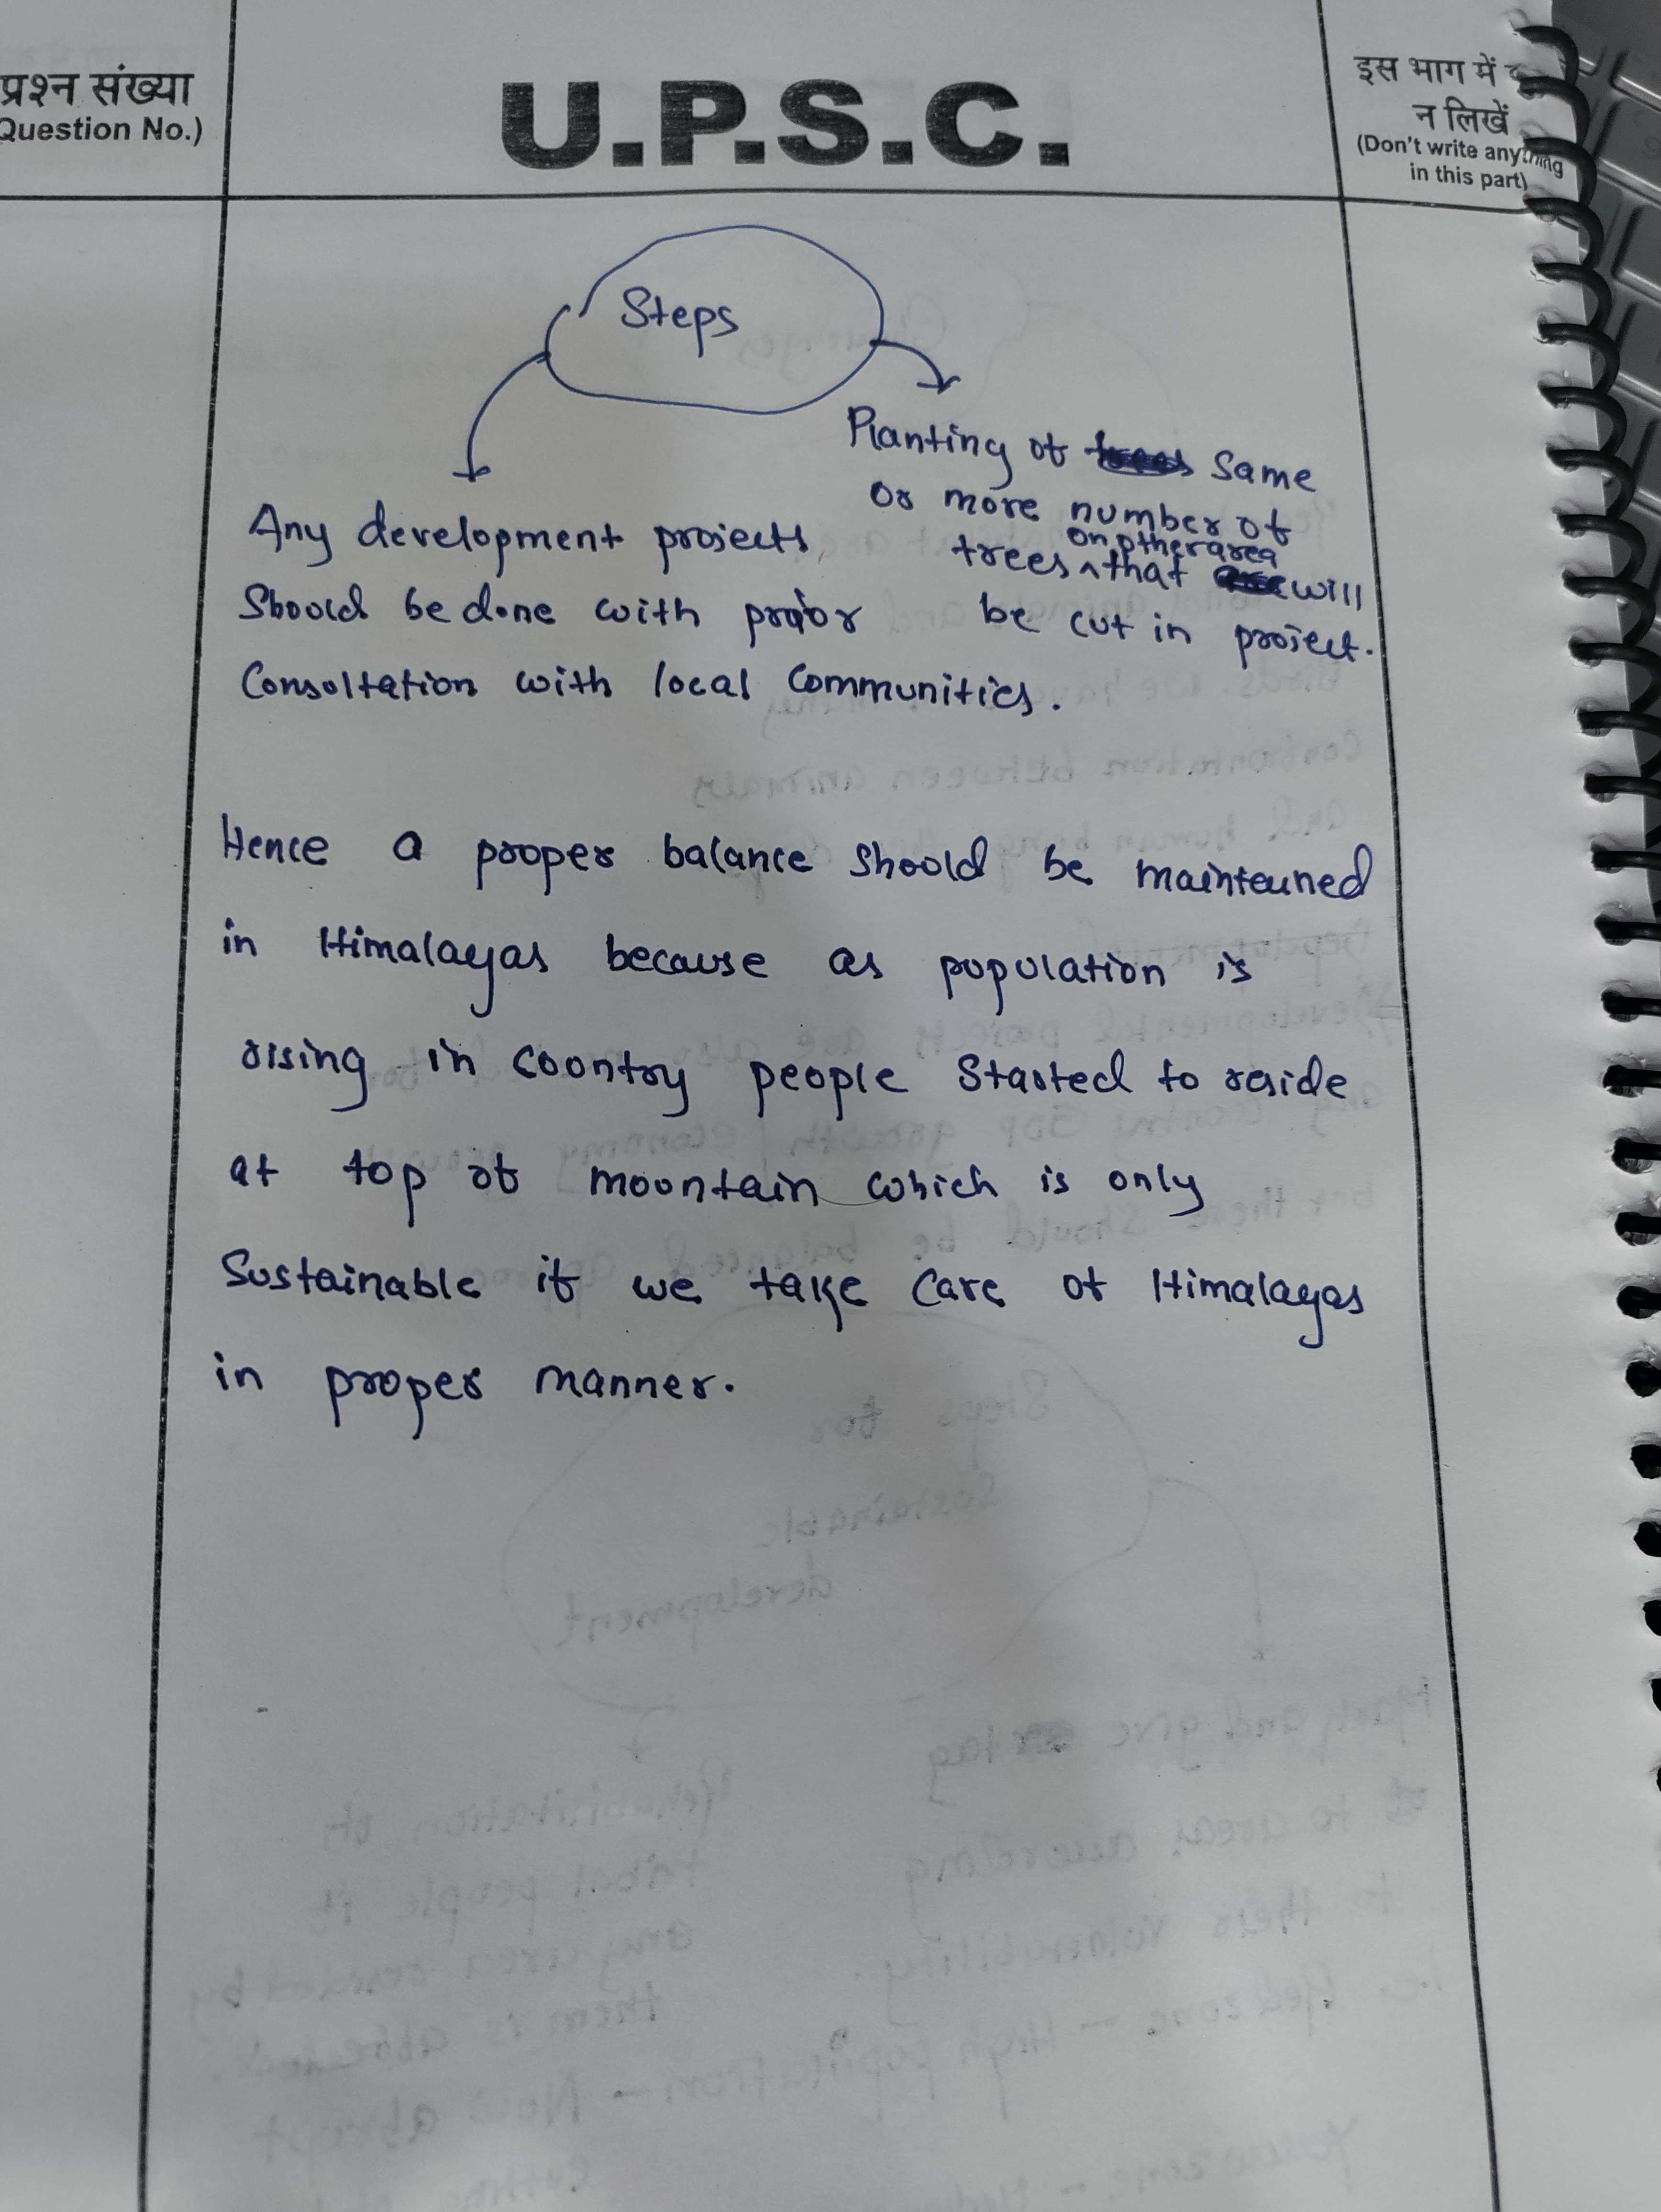 प्रश्न संख्या
Question No.)
U.P.S.C.
इस भाग में
न लिखें
(Don't write anything
in this part)
Steps
Planting of same
or more number of
on other area
trees ^ that will
be cut in project.
Any development projects
should be done with prior
Consultation with local Communities.
Hence a proper balance should be maintained
in Himalayas because as population is
rising in country people Started to reside
at top of mountain which is only
Sustainable if we take care of Himalayas
in proper manner.